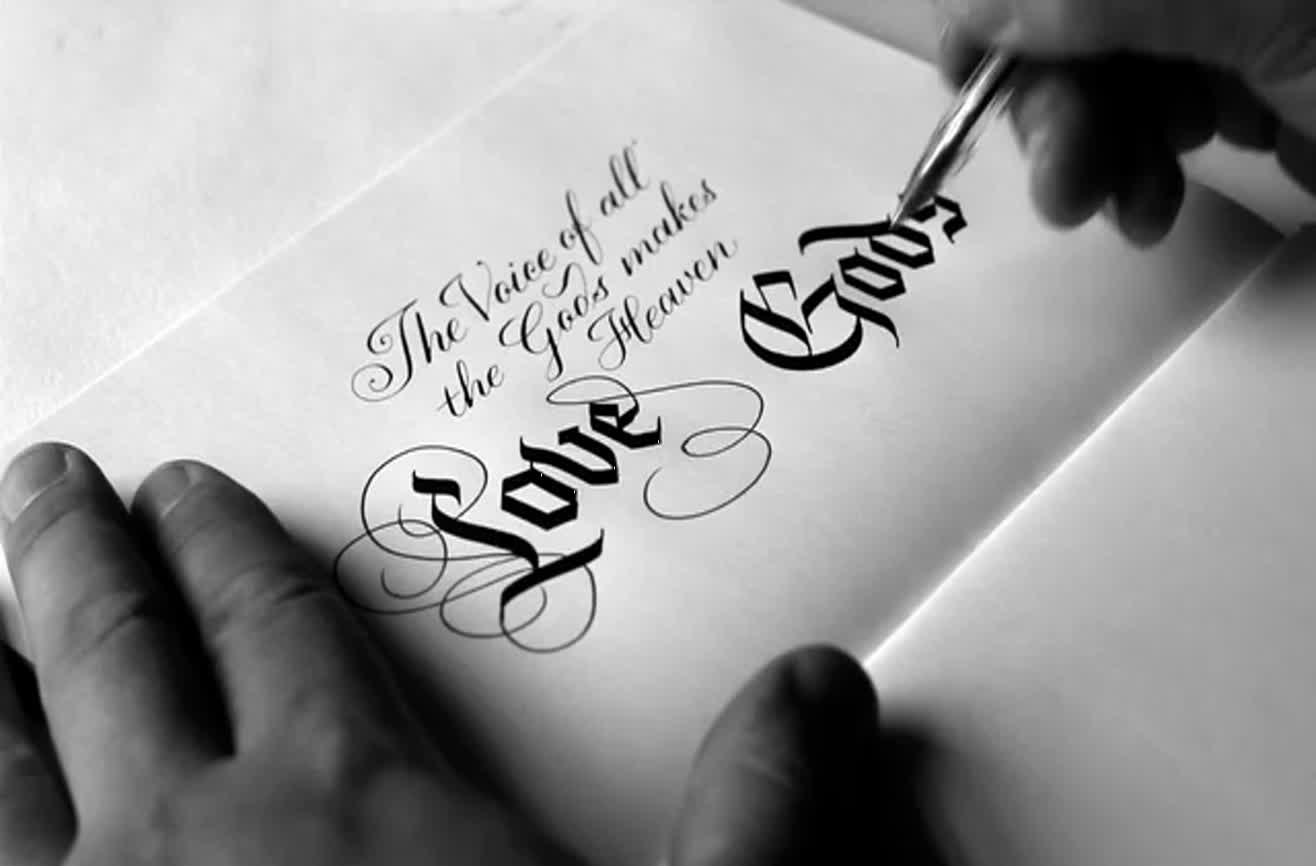 The Voice of all
the Gods makes
Heaven
Love
Gods